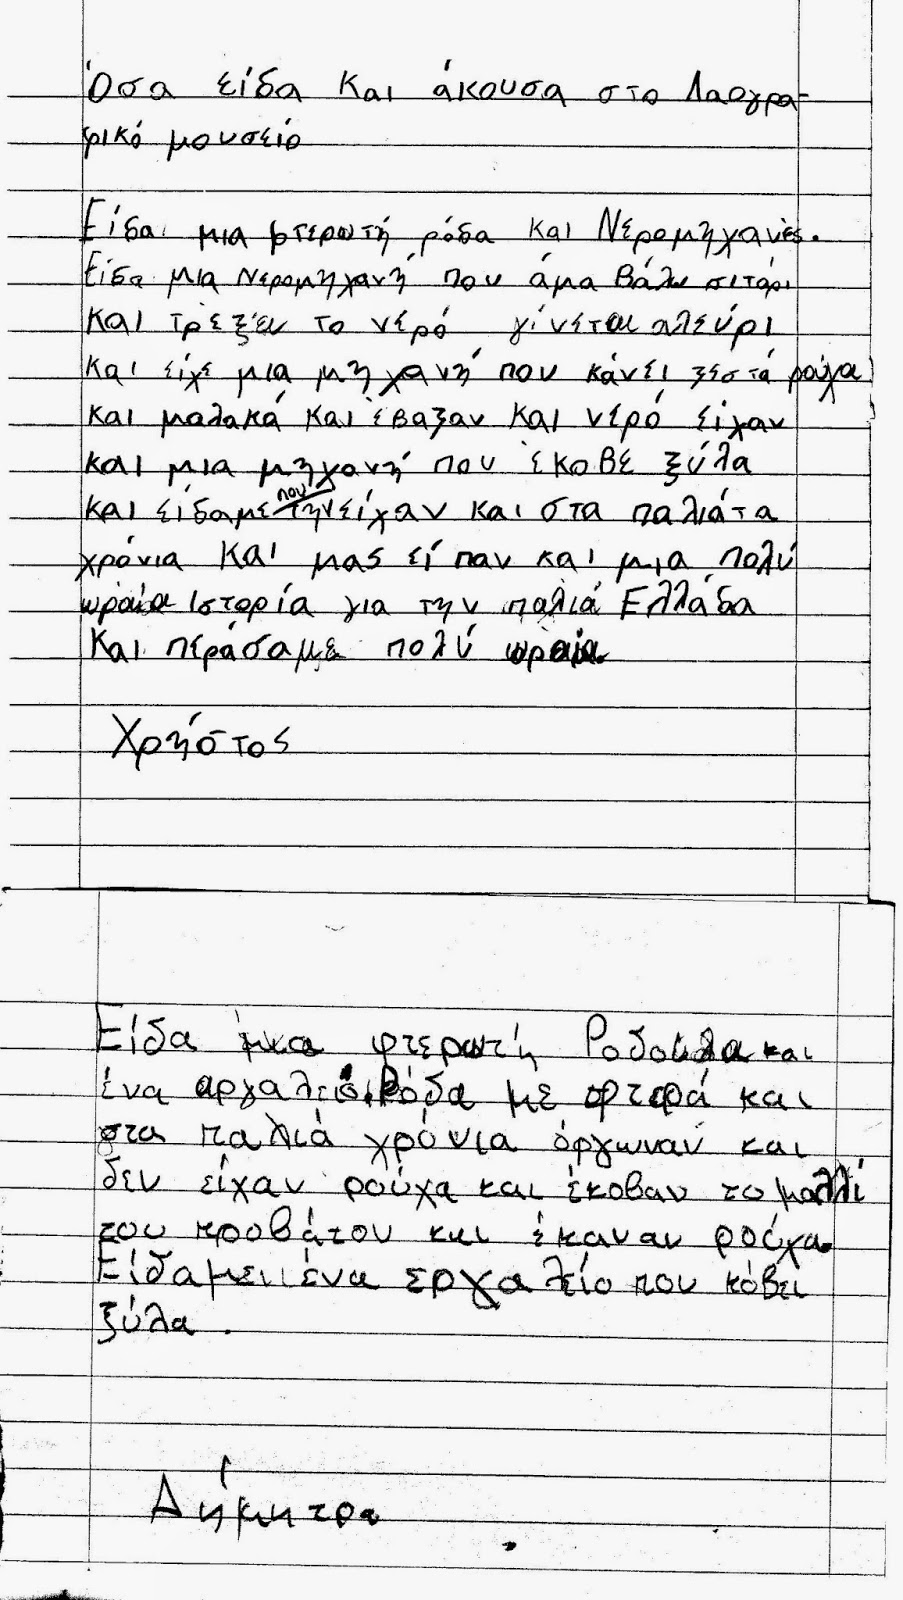 Όσα είδα και άκουσα στο Λαογρα-
φικό μουσείο
Είδα μια φτερωτή ρόδα και Νερομηχανές.
Είδα μια Νερομηχανή που άμα βάλω σιτάρι
και τρέξει το νερό γίνεται αλεύρι
και είχε μια μηχανή που κάνει ζεστά ρούχα
και μαλακά και έβαζαν και νερό είχαν
και μια μηχανή που έκοβε ξύλα
και είδαμε που είχαν και στα παλιάτα
χρόνια και μας είπαν και μια πολύ
ωραία ιστορία για την παλιά Ελλάδα
Και περάσαμε πολύ ωραία.
Χρήστος
Είδα μια φτερωτή και
ένα αργαλειό. Ρόδα με φτερά και
στα παλιά χρόνια όργωναν και
δεν είχαν ρούχα και έκοβαν το μαλλί
του προβάτου και έκαναν ρούχα.
Είδαμε ένα εργαλείο που κόβει
ξύλα.
Δήμητρα